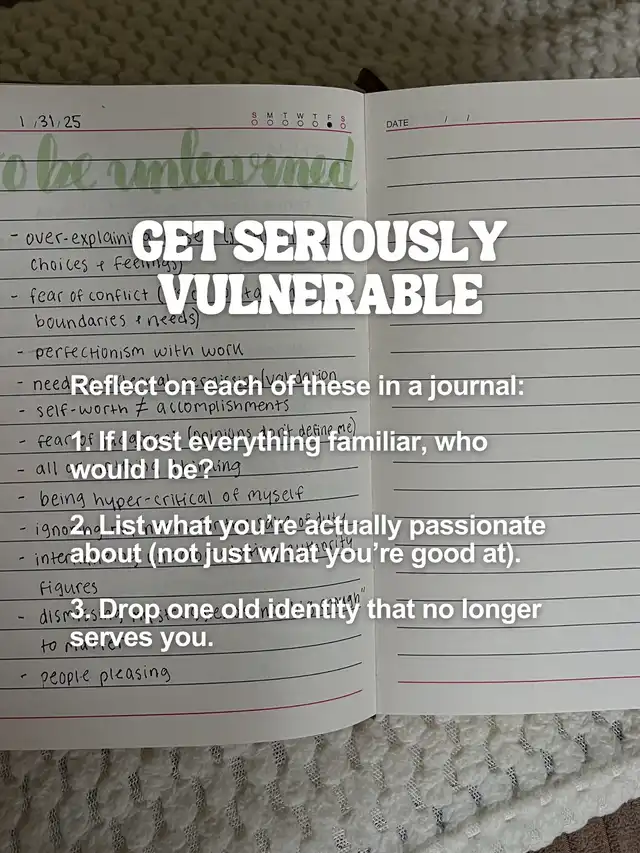 1/31/25
S M T W T F S
DATE / /
to be unlearned
GET SERIOUSLY
VULNERABLE
- over-explaini
choices + feelings)
- fear of conflict (
boundaries & needs)
- perfectionism with work
- need validation
- self-worth ≠ accomplishments
- fear of (opinions don't define me)
- all
- being hyper-critical of myself
- ignoring
- figures
- dismissi
to matter
- people pleasing
Reflect on each of these in a journal:
1. If I lost everything familiar, who
would I be?
2. List what you're actually passionate
about (not just what you're good at).
3. Drop one old identity that no longer
serves you.